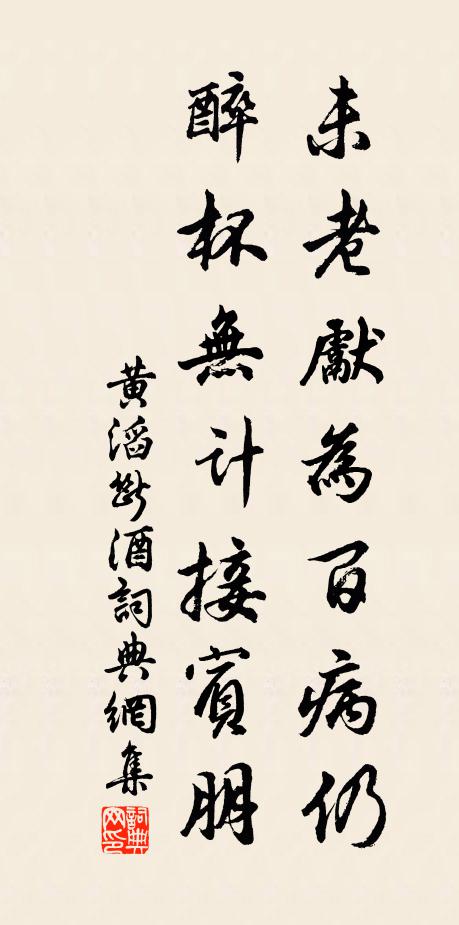 未老獻為百病仍
醉杯無計接賓朋
黃滔斷酒詞典網集
詞典网印